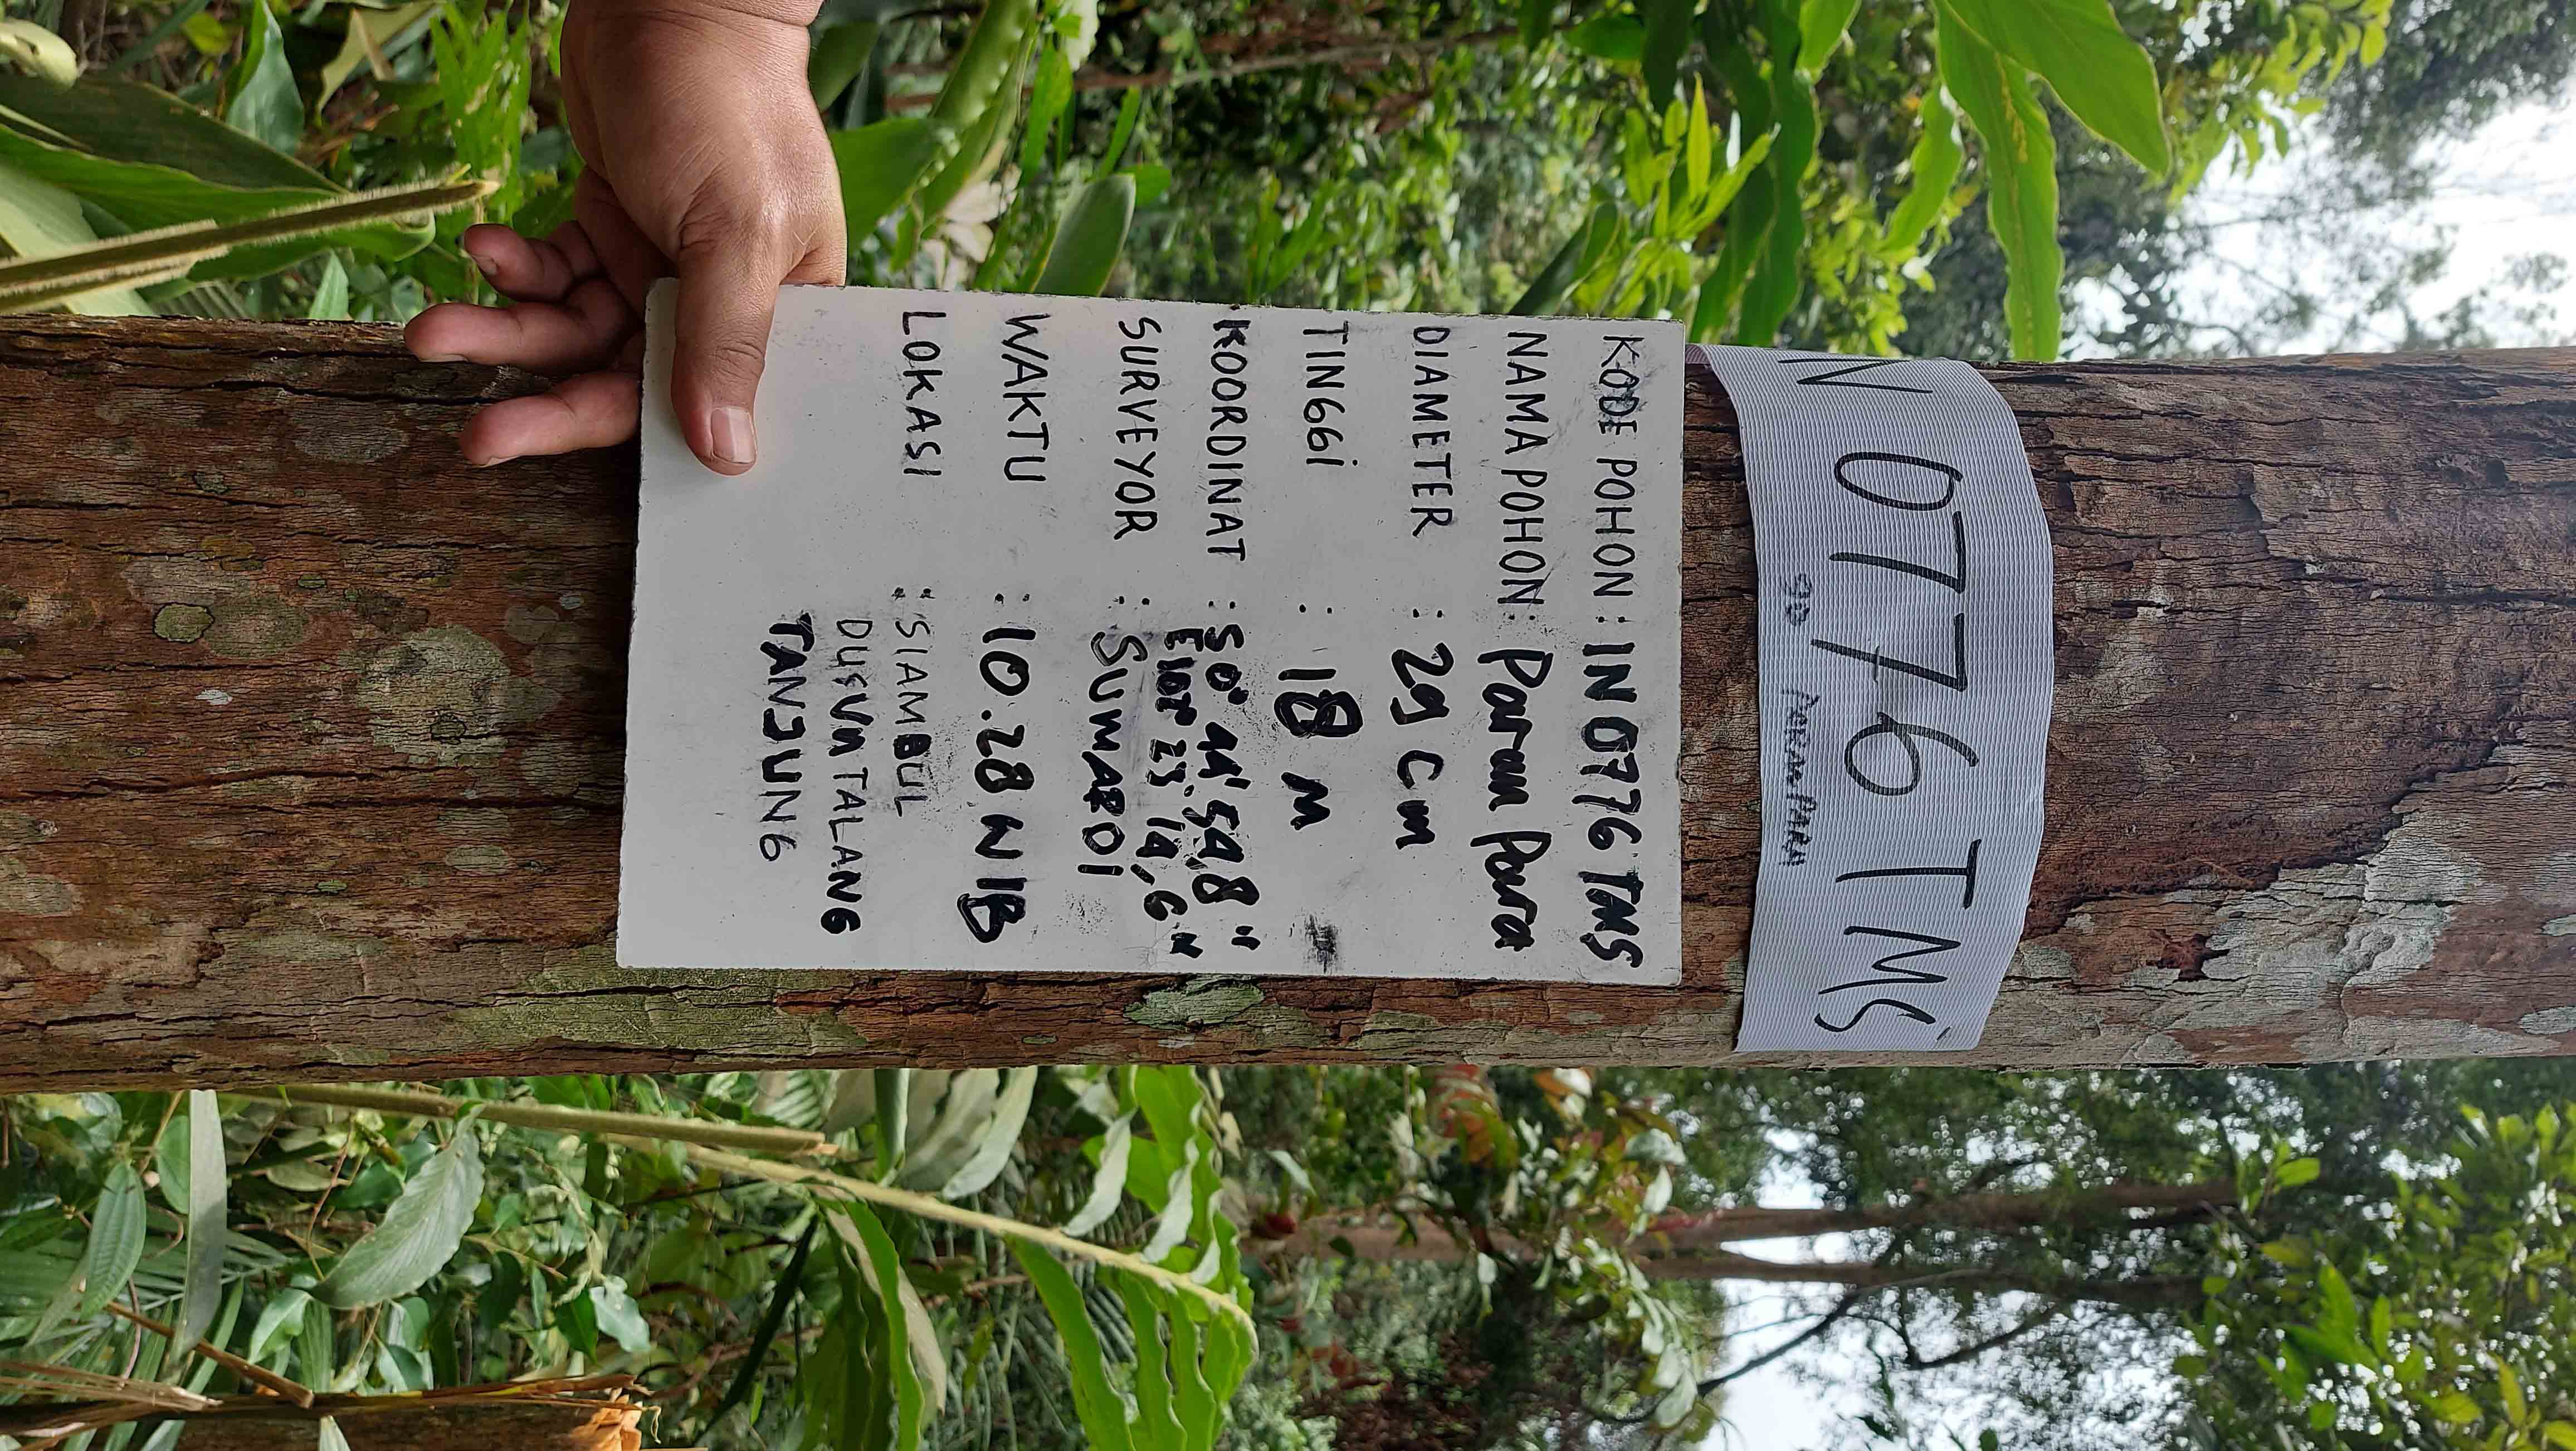 N 0776 TMS
90 PERAN PARA
KODE POHON : IN 0776 TMS
NAMA POHON : Paran Para
DIAMETER : 29 cm
TINGGI : 18 M
KOORDINAT : S 0° 44' 54,8"
E 102° 23' 14,6"
SURVEYOR : SUMARDI
WAKTU : 10.28 WIB
LOKASI : SIAMBUL
DUSUN TALANG
TANJUNG